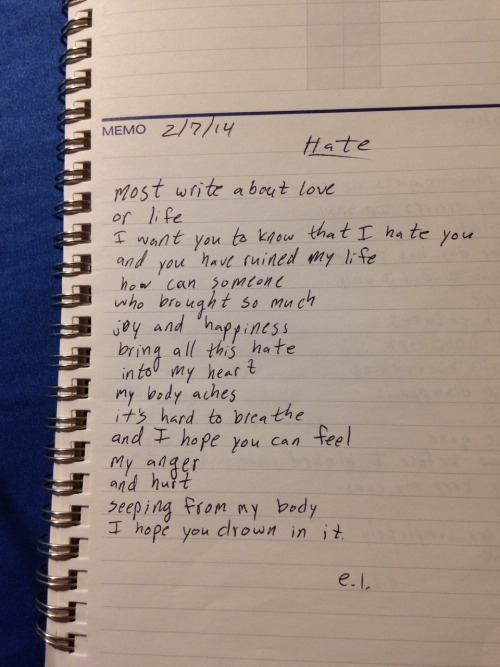 MEMO 2/7/14
Hate
most write about love
or life
I want you to know that I hate you
and you have ruined my life
how can someone
who brought so much
joy and happiness
bring all this hate
into my heart
my body aches
it's hard to breathe
and I hope you can feel
my anger
and hurt
seeping from my body
I hope you drown in it.
e.l.